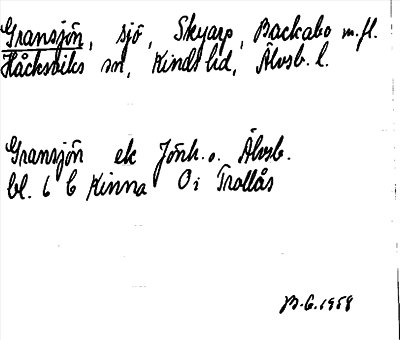 Gransjön, sjö, Skyarp, Backabo m.fl.
Håcksviks sn, Kinds hd, Älvsb. l.
Gransjön ek Jönk. o. Älvsb.
bl. 6 b Kinna Oi Trollås
B.G. 1958